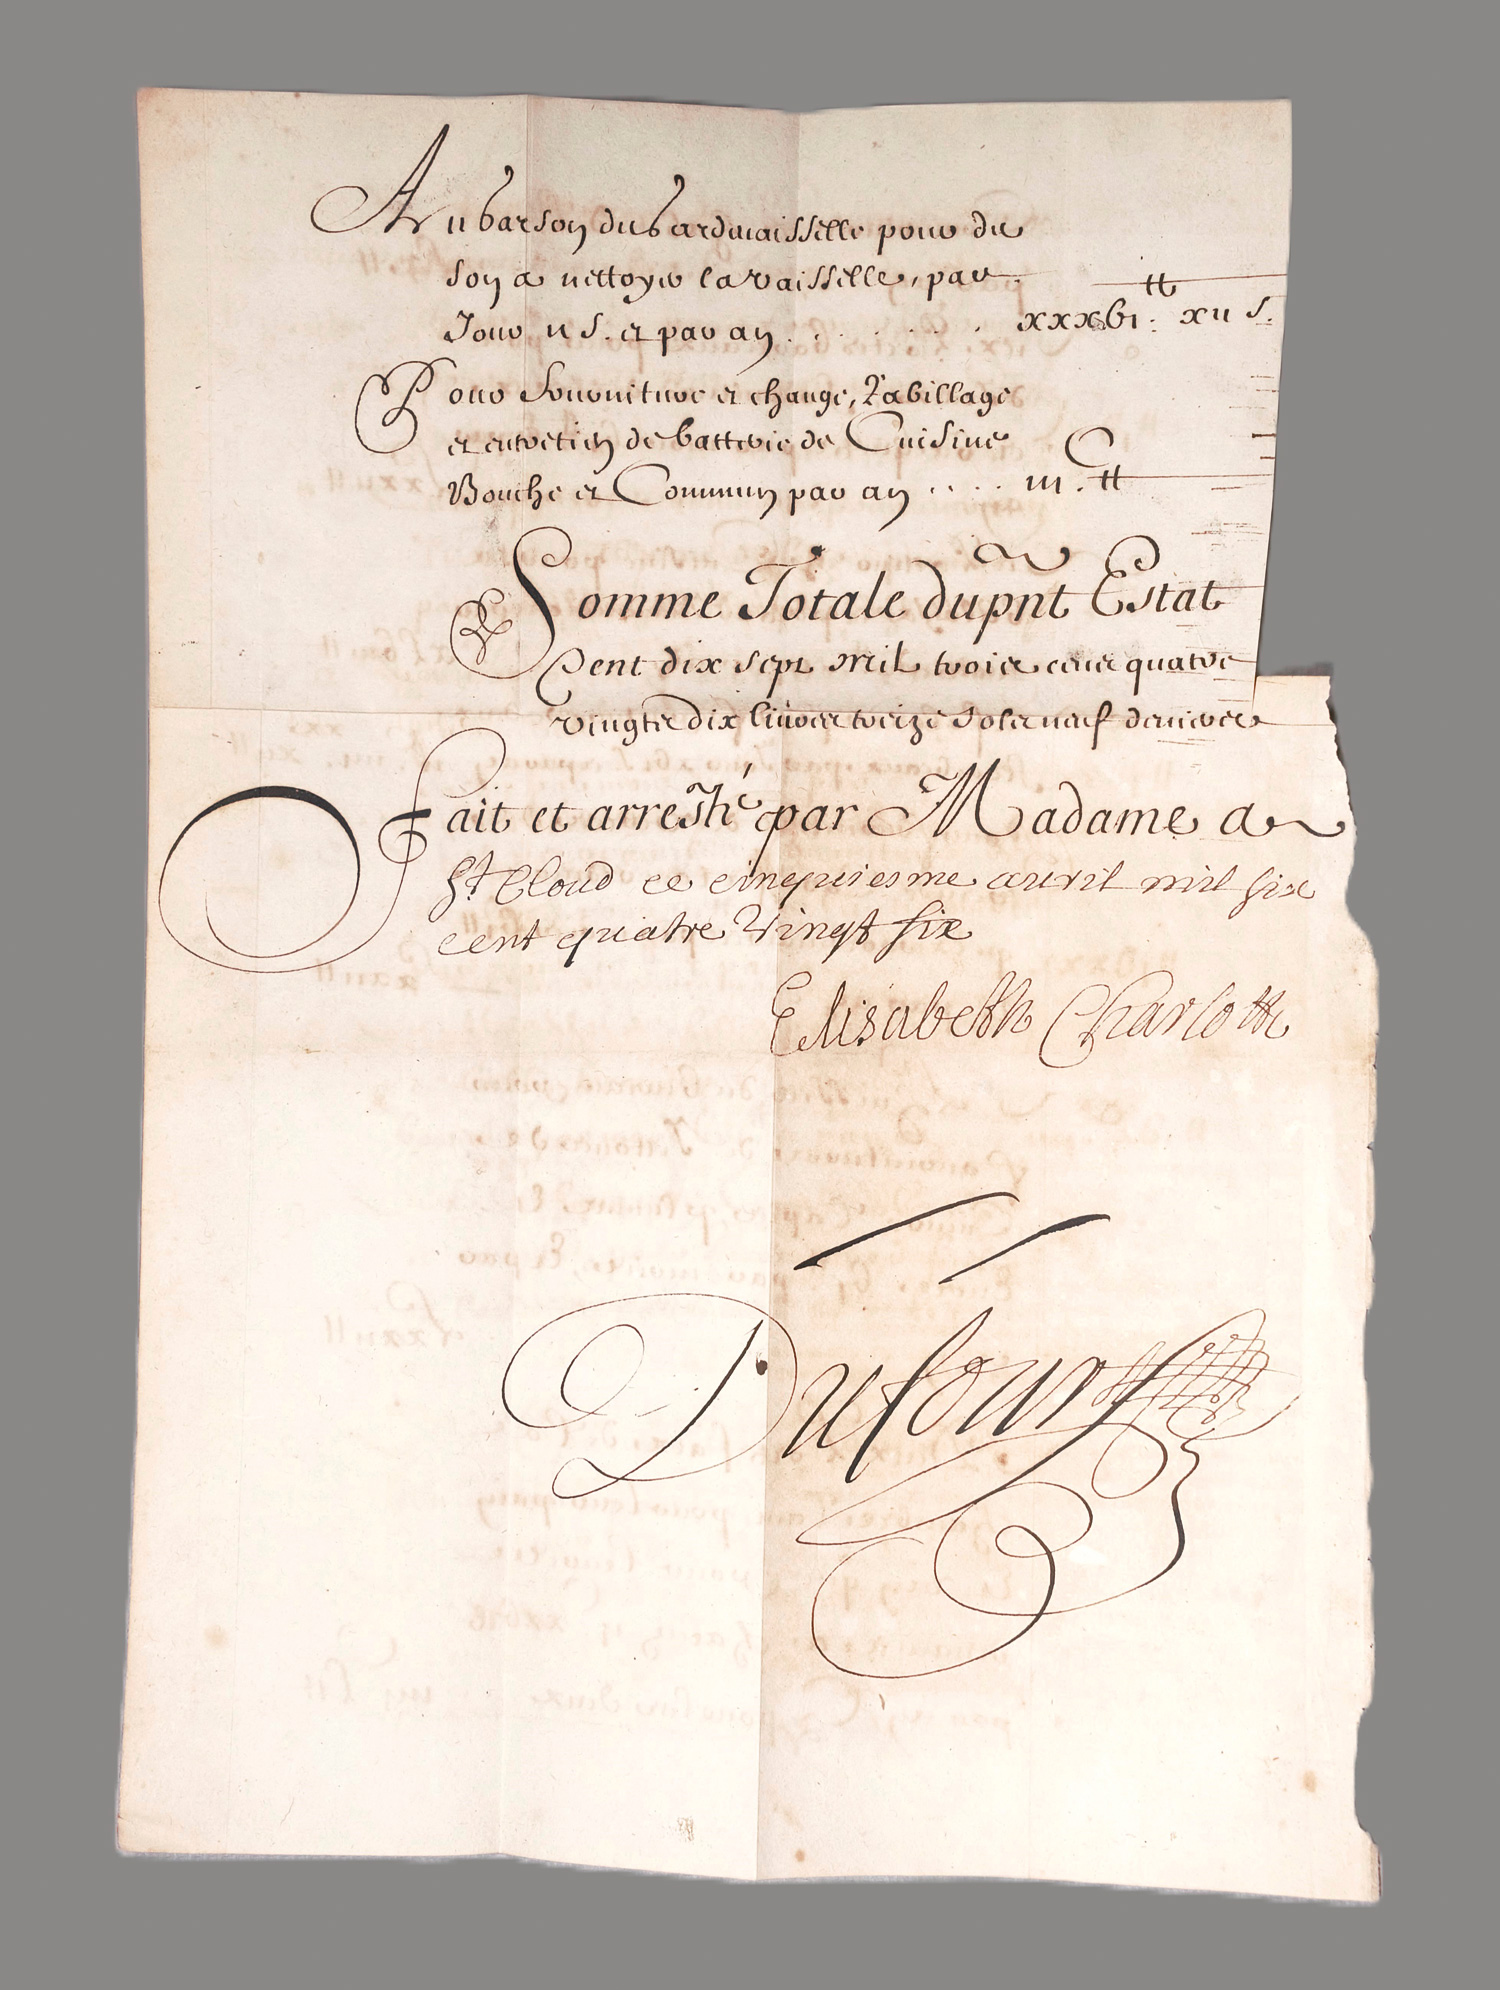 Au garson du gardvaisselle pour du
son a nettoyer la vaisselle, par
Jour II s. et par an . . . . . . . xxxvi tt: xii s.
Pour fourniture et change, Rabillage
et entretien de batterie de Cuisine
Bouche et Commun par an . . . . iii C tt
Somme Totale du pñt Estat
Cent dix sept mil trois cens quatre
vingts dix livres treize sols neuf deniers
Fait et arresté par Madame a
St Cloud ce cinquiesme auril mil six
cent quatre Vingt six
Elisabeth Charlotte
Dufour